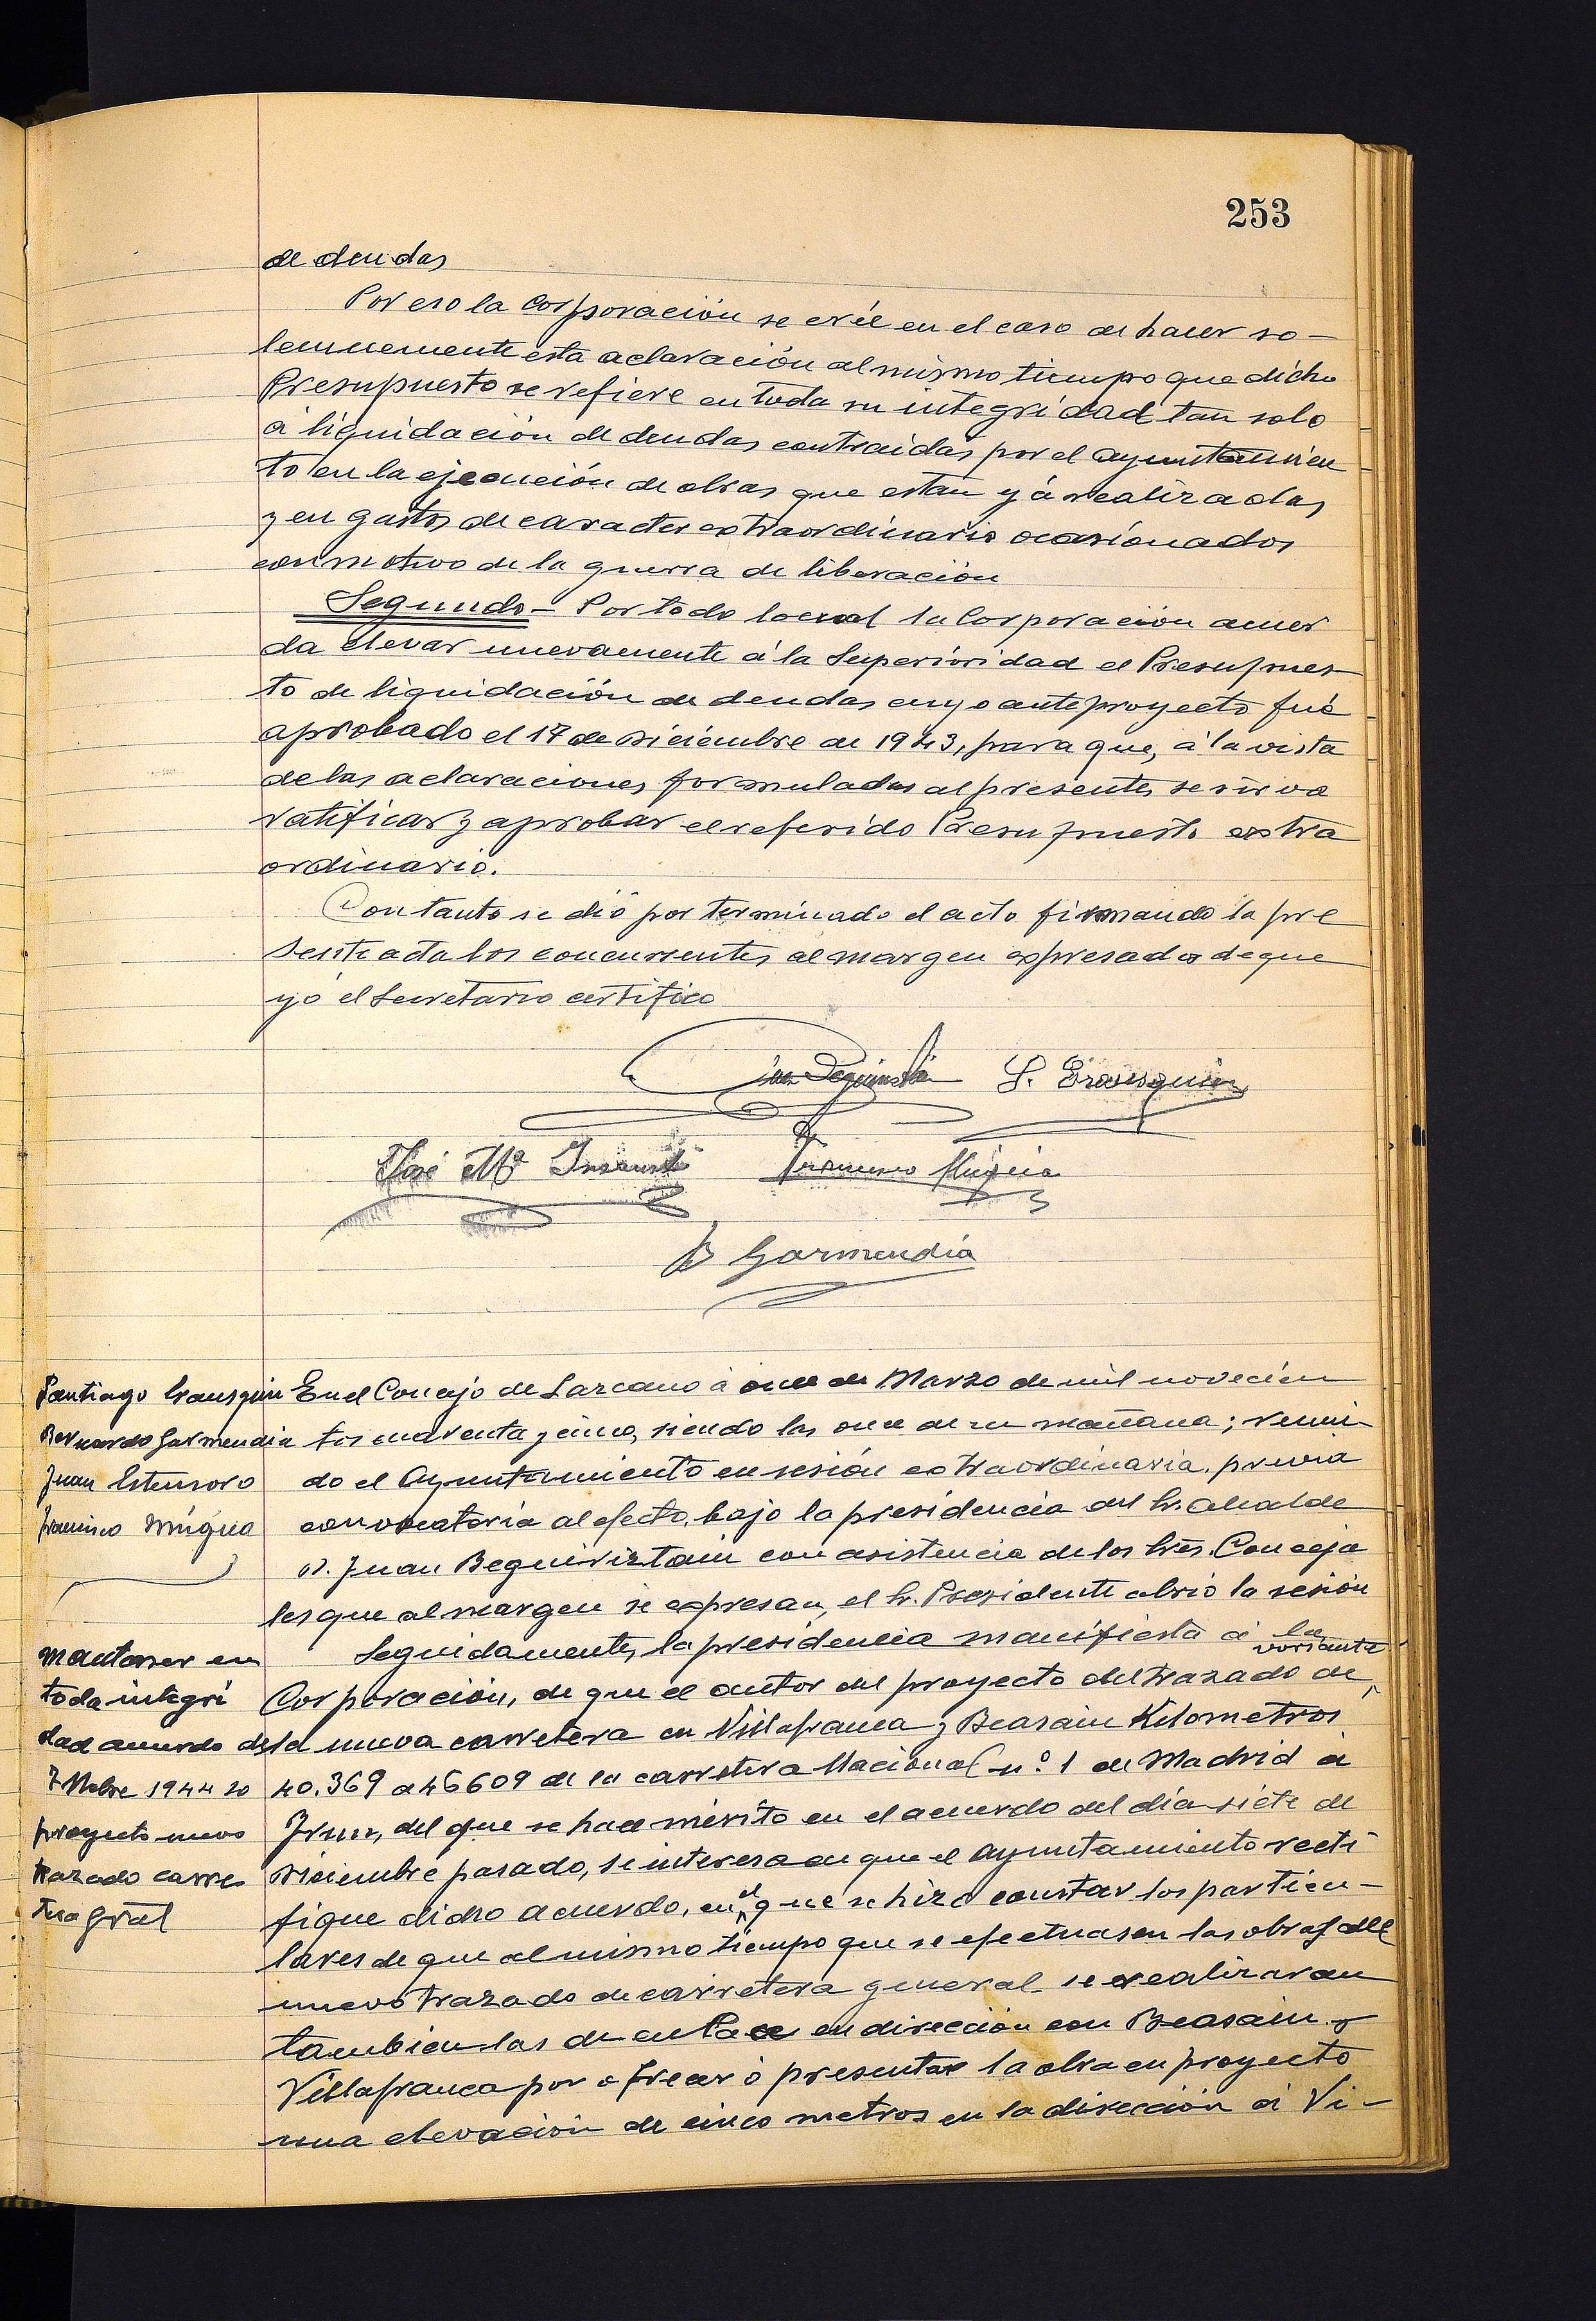 253
de deudas
Por eso la Corporación se crée en el caso de hacer so-
lemnemente esta aclaración al mismo tiempo que dicho
Presupuesto se refiere en toda su integridad tan solo
á liquidación de deudas contraidas por el ayuntamien
to en la ejecución de obras que estan yá realizadas
y en gastos de caracter extraordinario ocasionados
con motivo de la guerra de liberación
Segundo- Por todo lo cual la Corporación acuer
da elevar nuevamente á la Superioridad el Presupues
to de liquidación de deudas cuyo anteproyecto fué
aprobado el 17 de Diciembre de 1943, para que, á la vista
de las aclaraciones formuladas al presente, se sirva
ratificar y aprobar el referido Presupuesto extra
ordinario.
Con tanto se dió por terminado el acto firmando la pre
sente acta los concurrentes al margen expresados de que
yó el Secretario certifico
S. Erausquin
José Mª
Francisco Mugica
B Garmendia
Santiago Erausquin
Bernardo Garmendia
Juan Estensoro
Francisco Múgica
En el Concejo de Lazcano á once de Marzo de mil novecien
tos cuarenta y cinco, siendo las once de su mañana; reuni
do el Ayuntamiento en sesión extraordinaria, previa
convocatoria al efecto, bajo la presidencia del Sr. Alcalde
D. Juan Beguiristain con asistencia de los Sres. Conceja
les que al margen se expresan, el Sr. Presidente abrió la sesión
mantener en
toda integri
dad acuerdo de
7 Dbre 1944 so
proyecto nuevo
trazado carre
tera Gral
Seguidamente, la presidencia manifiesta á la
variante
Corporación, de que el autor del proyecto del trazado de
la nueva carretera en Villafranca y Beasain Kilometros
40.369 a 46609 de la carretera Nacional nº 1 de Madrid á
Irun, del que se hace mérito en el acuerdo del día siete de
Diciembre pasado, se interesa de que el Ayuntamiento recti
fique dicho acuerdo, en el que se hizo constar los particu-
lares de que al mismo tiempo que se efectuasen las obras del
nuevo trazado de carretera general se realizaran
tambien las de enlace en dirección con Beasain y
Villafranca por ofrecer ó presentar la obra en proyecto
una elevación de cinco metros en la dirección á Vi-